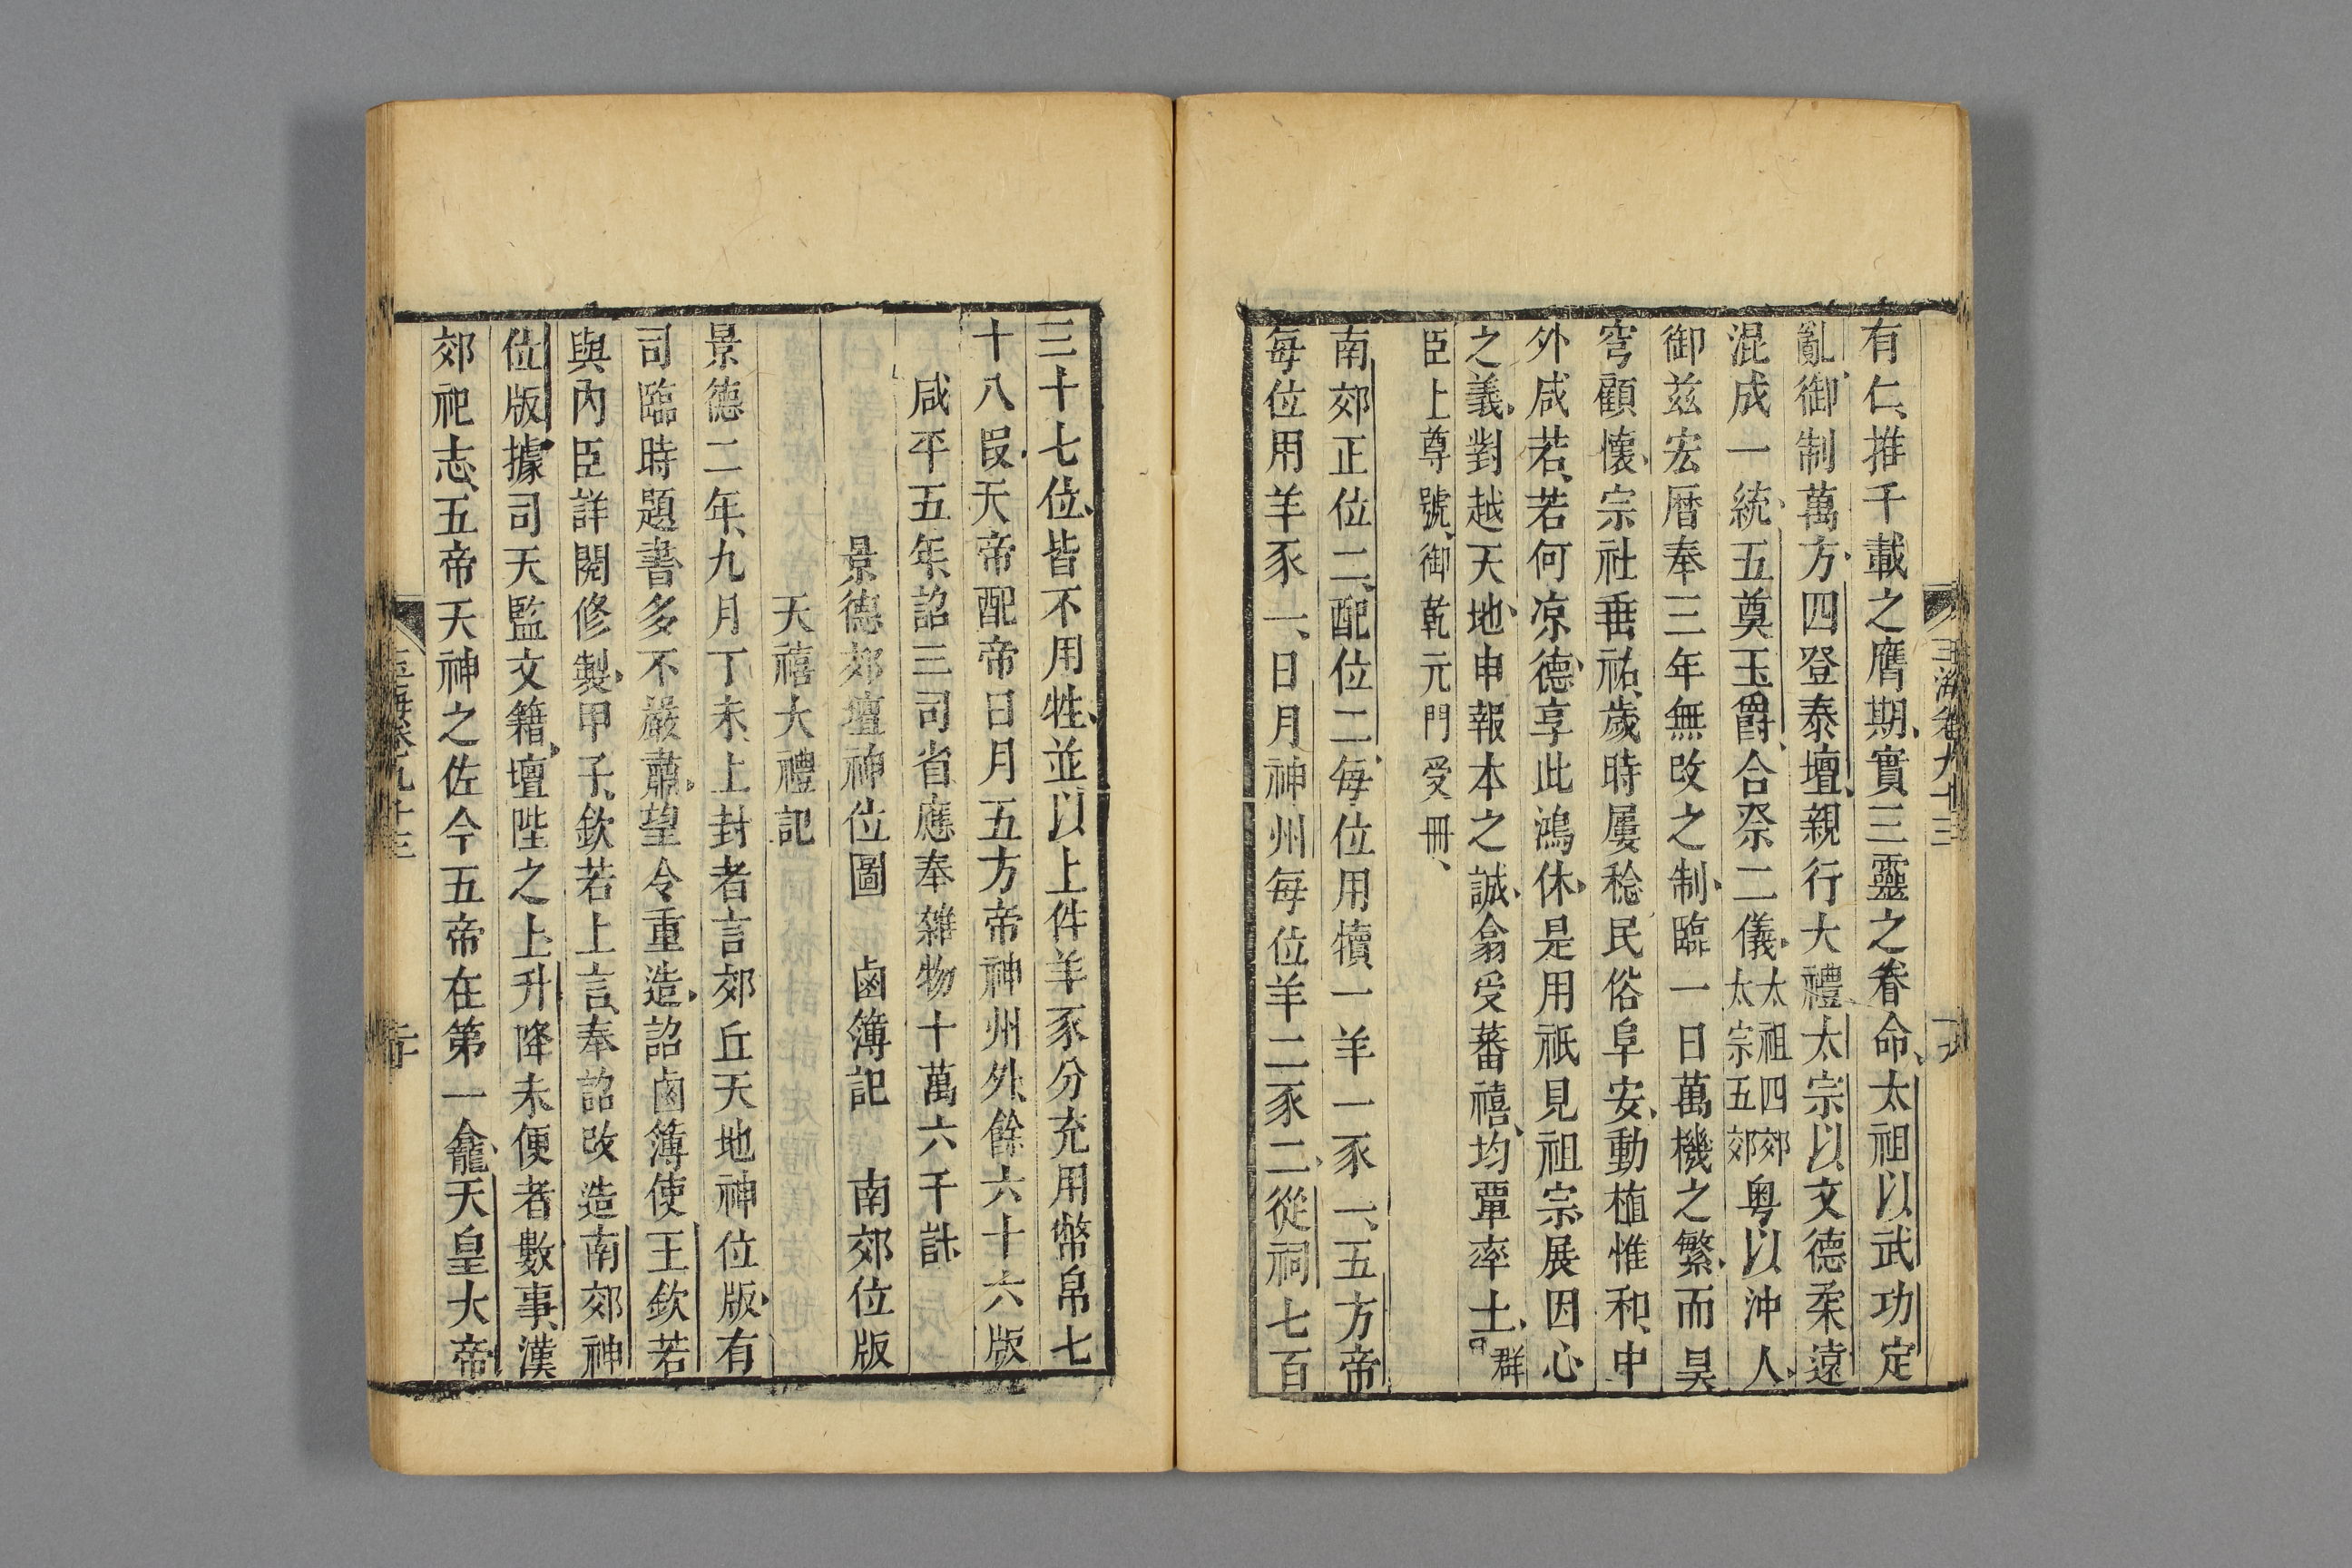 玉海卷九十三
有仁推千載之膺期實三靈之眷命太祖以武功定
亂御制萬方四登泰壇親行大禮太宗以文德柔遠
混成一統五奠玉爵合祭二儀太祖四郊太宗五郊粤以沖人
御兹宏曆奉三年無改之制臨一日萬機之繁而昊
穹顧懷宗社垂祐歲時屢稔民俗阜安動植惟和中
外咸若若何凉德享此鴻休是用祇見祖宗展因心
之義對越天地申報本之誠翕受蕃禧均覃率土群
臣上尊號御乾元門受冊
南郊正位二配位二每位用犢一羊一豕一五方帝
每位用羊豕一日月神州每位羊二豕二從祠七百
三十七位皆不用牲並以上件羊豕分充用幣帛七
十八段天帝配帝日月五方帝神州外餘六十六版
咸平五年詔三司省應奉雜物十萬六千計
景德郊壇神位圖 鹵簿記 南郊位版
天禧大禮記
景德二年九月丁未上封者言郊丘天地神位版有
司臨時題書多不嚴肅望令重造詔鹵簿使王欽若
與內臣詳閱修製甲子欽若上言奉詔改造南郊神
位版據司天監文籍壇陛之上升降未便者數事漢
郊祀志五帝天神之佐今五帝在第一龕天皇大帝
玉海卷九十三
二十